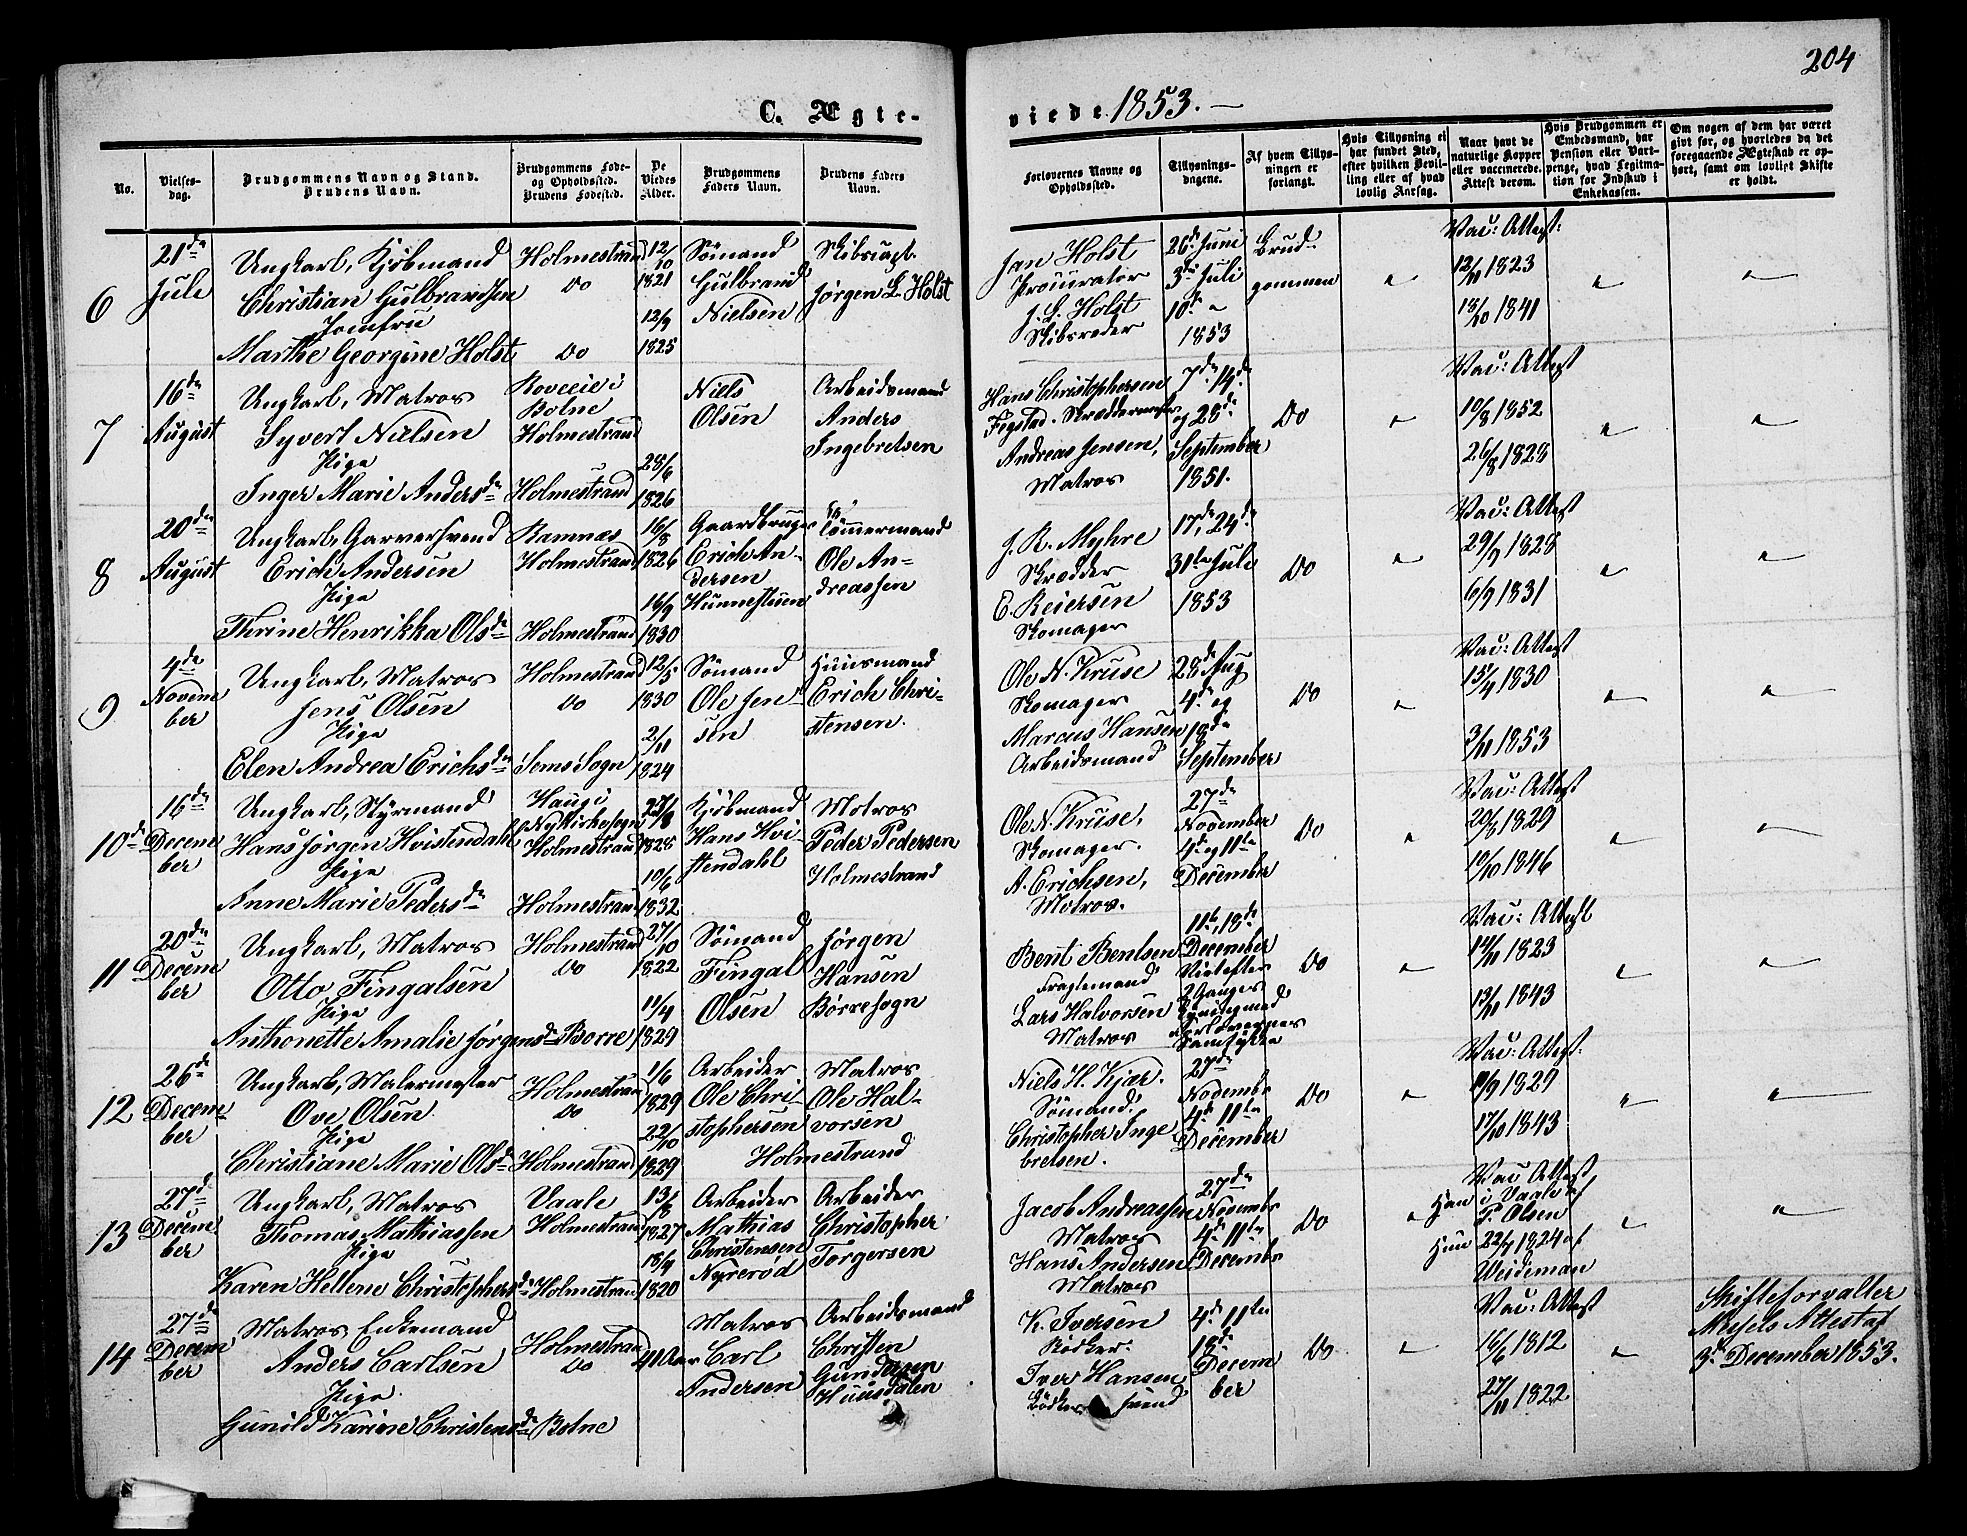 204
C. Ægte-
viede 1853.
No.
Vielses-
dag.
Brudgommens Navn og Stand.
Brudens Navn.
Brudgommens Føde-
og Opholdssted.
Brudens Fødested.
De
Viedes
Alder.
Brudgommens
Faders Navn.
Brudens Faders
Navn.
Forlovernes Navne og
Opholdssted.
Tillysnings-
dagene.
Af hvem Tillys-
ningen er
forlangt.
Hvis Tillysning ei
har fundet Sted,
efter hvilken Bevil-
ling eller af hvad
lovlig Aarsag.
Naar havt de
naturlige Kopper
eller vaccinerede.
Attest derom.
Hvis Brudgommen er
Embedsmand, har
Pension eller Vart-
penge, hvad Legitima-
tion for Indskud i
Enkekassen.
Om nogen af dem har været
givt før, og hvorledes da det
foregaaende Ægteskab er op-
hørt, samt om lovligt Skifte
er holdt.
6
21de
Juli
Ungkarl, Kjøbmand
Christian Gulbrandsen
Jomfru
Marthe Georgine Holst
Holmestrand
Do
Do
12/10
1821
12/9
1825
Sømand
Gulbrand
Nielsen
Jørgen L. Holst
Jan Holst
Procurator
J. L. Holst
Skibsreder
26de Juni
3die Juli
10de "
1853
Brud-
gommen
"
Vac: Attest:
12/11 1823
13/10 1841
"
"
7
16de
August
Ungkarl, Matros
Syvert Nielsen
Pige
Inger Marie Andersdr
Roveeie i
Botne
Holmestrand
Holmestrand
28/6
1826
Niels
Olsen
Arbeidsmand
Anders
Ingebretsen
Hans Christophersen
Fegstad. Skræddermester
Andreas Jensen,
Matros
7de 14de
og 28de
September
1851.
Do
"
Vac: Attest
10/8 1852
26/8 1828
"
"
8
20de
August
Ungkarl, Garversvend
Erich Andersen
Pige
Thrine Henrikka Olsdr
Ramnæs
Holmestrand
Holmestrand
16/8
1826
16/9
1830
Gaardbruger
Erich An-
dersen
Hunnestuen
Tømmermand
Ole An-
dreassen
J. R. Myhre
Skrædder
E. Reiersen
Skomager
17de, 24de
31te Juli
1853
Do
"
Vac: Attest
29/9 1828
6/9 1831
"
"
9
4de
Novem
ber
Ungkarl, Matros
Jens Olsen
Pige
Elen Andrea Erichsdr
Holmestrand
Do
Sems Sogn
12/5
1830
2/11
1824
Sømand
Ole Jen-
sen
Huusmand
Erich Chri-
stensen.
Ole N. Kruse
Skomager
Marcus Hansen
Arbeidsmand
28de Aug
4de og
18de
September
Do
"
Vac: Attest
1830
3/11 1853
"
"
10de
16de
Decem
ber
Ungkarl, Styrmand
Hans Jørgen Hvistendahl
Pige
Anne Marie Pedersdr
Haug i
Nykirkesogn
Holmestrand
Holmestrand
27/8
1828
10/6
1832
Kjøbmand
Hans Hvi-
stendahl
Matros
Peder Pedersen
Holmestrand
Ole N. Kruse,
Skomager.
A. Erichsen,
Matros.
27de
November
4de og 11te
December
Do
"
Vac: Attest
20/8 1829
10/10 1846
"
"
11
20de
Decem
ber
Ungkarl, Matros
Otto Fingalsen
Pige
Anthonette Amalie Jørgensdr
Holmestrand
Do
Borre
27/10
1822
11/4
1829
Sømand
Fingal
Olsen
Jørgen
Hansen
Børresogn
Bent Bentsen
Fragtemand
Lars Halvorsen
Matros
11te, 18de
December
Viet efter
2 Ganges
Lysning med
Forlovernes
Samtykke
Do
"
Vac: Attest
14/11 1823
13/11 1843
"
"
12
26de
Decem
ber
Ungkarl, Malermester
Ove Olsen
Pige
Christiane Marie Olsdr
Holmestrand
Do
Holmestrand
1/6
1829
22/10
1829
Arbeider
Ole Chri-
stophersen
Matros
Ole Hal-
vorsen
Holmestrand
Niels H. Kjær.
Sømand.
Christopher Inge
bretsen.
27de
Novembr
4de 11te
December
Do
"
Vac: Attest:
1829
17/10 1843
"
"
13
27de
Decem
ber
Ungkarl, Matros
Thomas Mathiassen
Pige
Karen Hellene Christophersdr
Vaale
Holmestrand
Holmestrand
13/8
1827
18/4
1820
Arbeider
Mathias
Christensen
Nyrerød
Arbeider
Christopher
Torgersen
Jacob Andreassen
Matros
Hans Andersen
Matros
27de
Novembr
4de 11te
Decembr
Do
"
Vac Attest
Han i Vaale af
P. Olsen
Hun 22/7 1824 af
Weideman
"
"
14
27de
Decem
ber
Matros Enkemand
Anders Carlsen
Pige
Gunild Karine Christensdr
Holmestrand
Do
Botne
41 Aar
Matros
Carl
Andersen
Arbeidsmand
Christen
Gundersen
Huusdalen
K. Iversen
Bødker.
Iver Hansen
Bødkersvend
4de 11te
18de
Decem
ber
Do
"
Vac: Attest
16/6 1812
27/11 1822
"
Skifteforvalter
Attest af
3de December 1853.